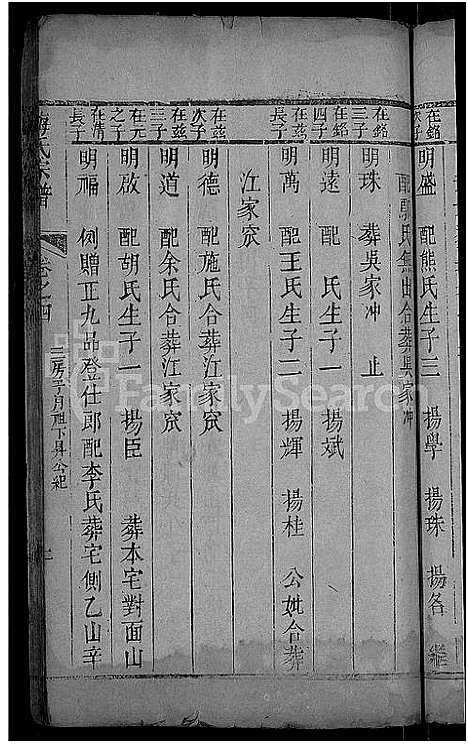 在銘
次子
明盛 配熊氏生子三 揚學 揚珠 揚各
氏焦曲合葬吳家冲
在銘
三子
明珠 葬吳家冲 止
在銘
四子
明遠 配 氏生子一 揚斌
在茲
長子
明萬 配王氏生子二 揚輝 揚桂 公妣合葬
江家㘭
在茲
次子
明德 配施氏合葬江家㘭
在茲
三子
明道 配余氏合葬江家㘭
在元
之子
明啟 配胡氏生子一 揚臣 葬本宅對面山
在清
長子
明福 例贈正九品登仕郎配李氏葬宅側乙山辛
氏宗譜
卷之四
三房子月祖下昇公紀
FamilySearch